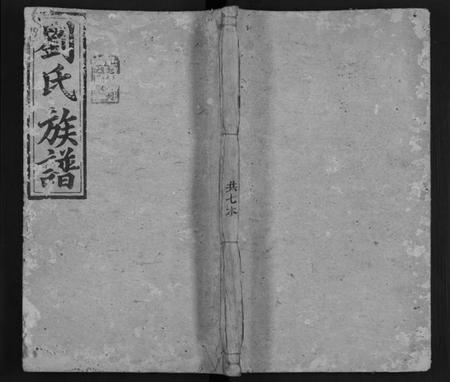 劉氏族譜
共七本